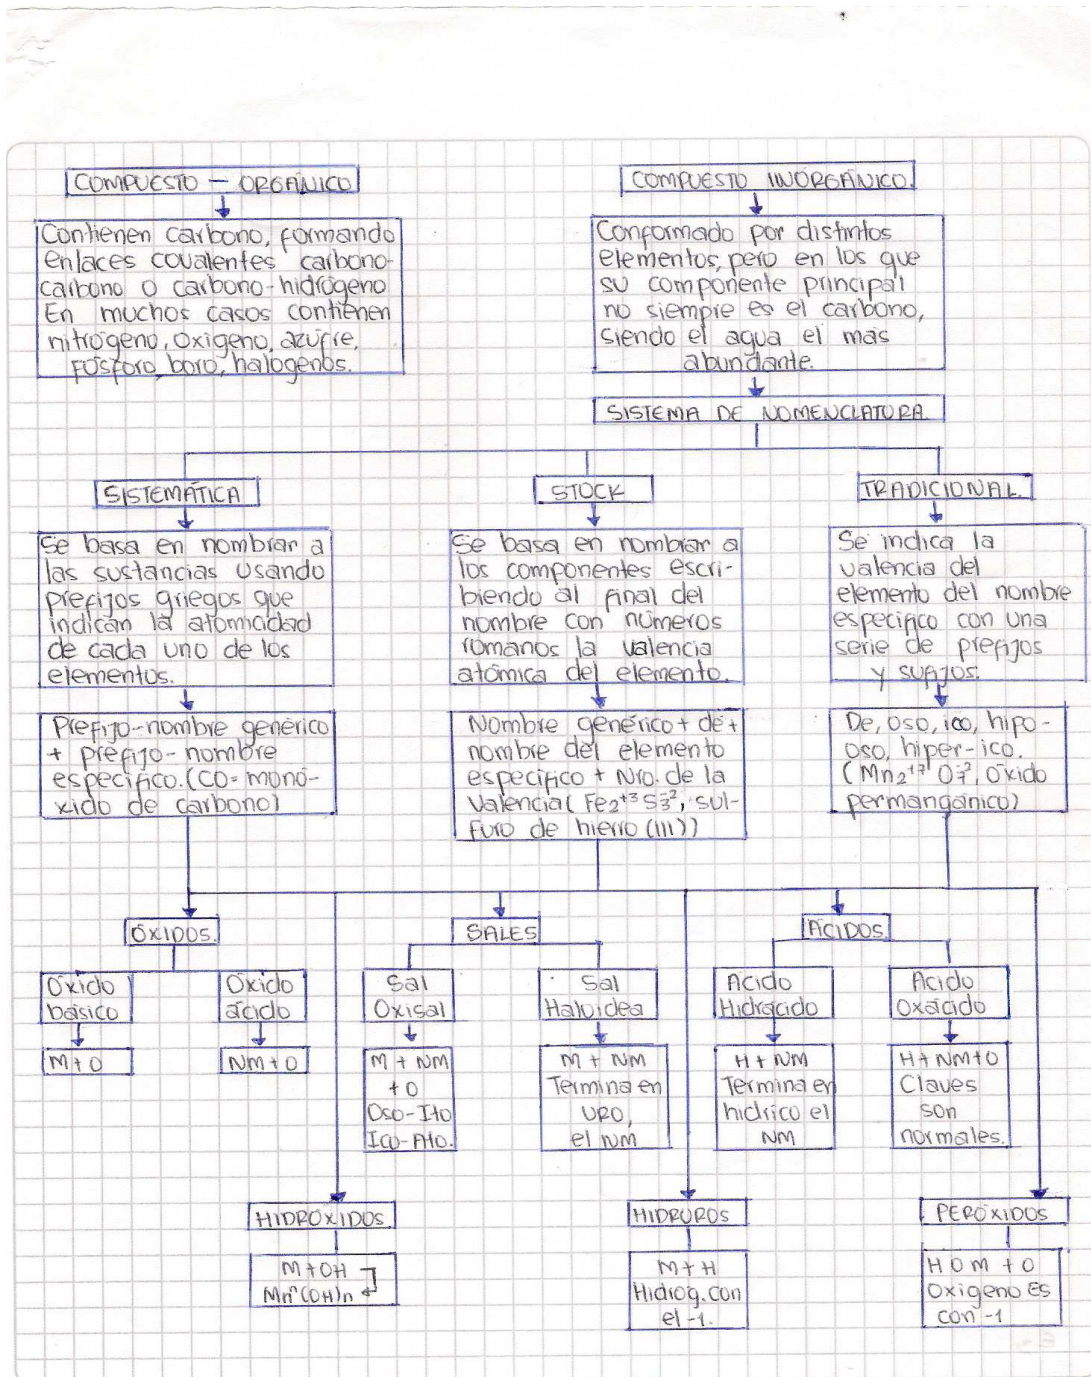 COMPUESTO - ORGÁNICO
Contienen carbono, formando
enlaces covalentes carbono-
carbono o carbono-hidrógeno
En muchos casos contienen
nitrógeno, oxigeno, azufre,
fósforo, boro, halogenos.
COMPUESTO INORGÁNICO.
Conformado por distintos
elementos, pero en los que
su componente principal
no siempre es el carbono,
siendo el agua el mas
abundante.
SISTEMA DE NOMENCLATURA
SISTEMÁTICA
Se basa en nombrar a
las sustancias usando
prefijos griegos que
indican la atomicidad
de cada uno de los
elementos.
Prefijo-nombre genérico
+ prefijo-nombre
especifico. (CO = monó-
xido de carbono)
STOCK
Se basa en nombrar a
los componentes escri-
biendo al final del
nombre con números
romanos la valencia
atómica del elemento.
Nombre genérico + de +
nombre del elemento
especifico + Nro. de la
valencia (Fe₂⁺³S₃⁻², sul-
furo de hierro (III))
TRADICIONAL.
Se indica la
valencia del
elemento del nombre
especifico con una
serie de prefijos
y sufijos.
De, oso, ico, hipo-
oso, hiper-ico.
(Mn₂⁺⁷O₇⁻², óxido
permangánico)
ÓXIDOS.
Óxido
básico
M+O
Óxido
ácido
NM+O
SALES
Sal
Oxisal
M + NM
+O
Oso-Ito
Ico-Ato.
Sal
Haloidea
M + NM
Termina en
URO,
el NM
ÁCIDOS.
Ácido
Hidrácido
H + NM
Termina en
hídrico el
NM
Ácido
Oxácido
H+NM+O
Claves
son
normales.
HIDRÓXIDOS
M+OH
Mⁿ(OH)n
HIDRUROS
M+H
Hidrog. con
el -1.
PERÓXIDOS
H O M + O
Oxigeno Es
con -1